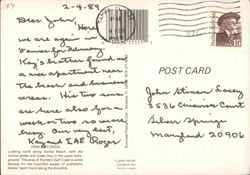 2-4-89
Dear John,
Here
we are again in
Venice for February
Kay's brother found us
a nice apartment near
the beach and business
areas. His two sons
are here also for a
week or two so we're
busy. Our very best,
Kay and Roger
Looking north along Venice Beach with the
Venice jetties and Casey Key in the upper back-
ground. This area of Florida's Gulf Coast is world
famous for the bountiful supply of prehistoric
shark teeth found along the shoreline.
PM
POST CARD
John Stinson
Circuit
Silver Springs
Maryland 20906